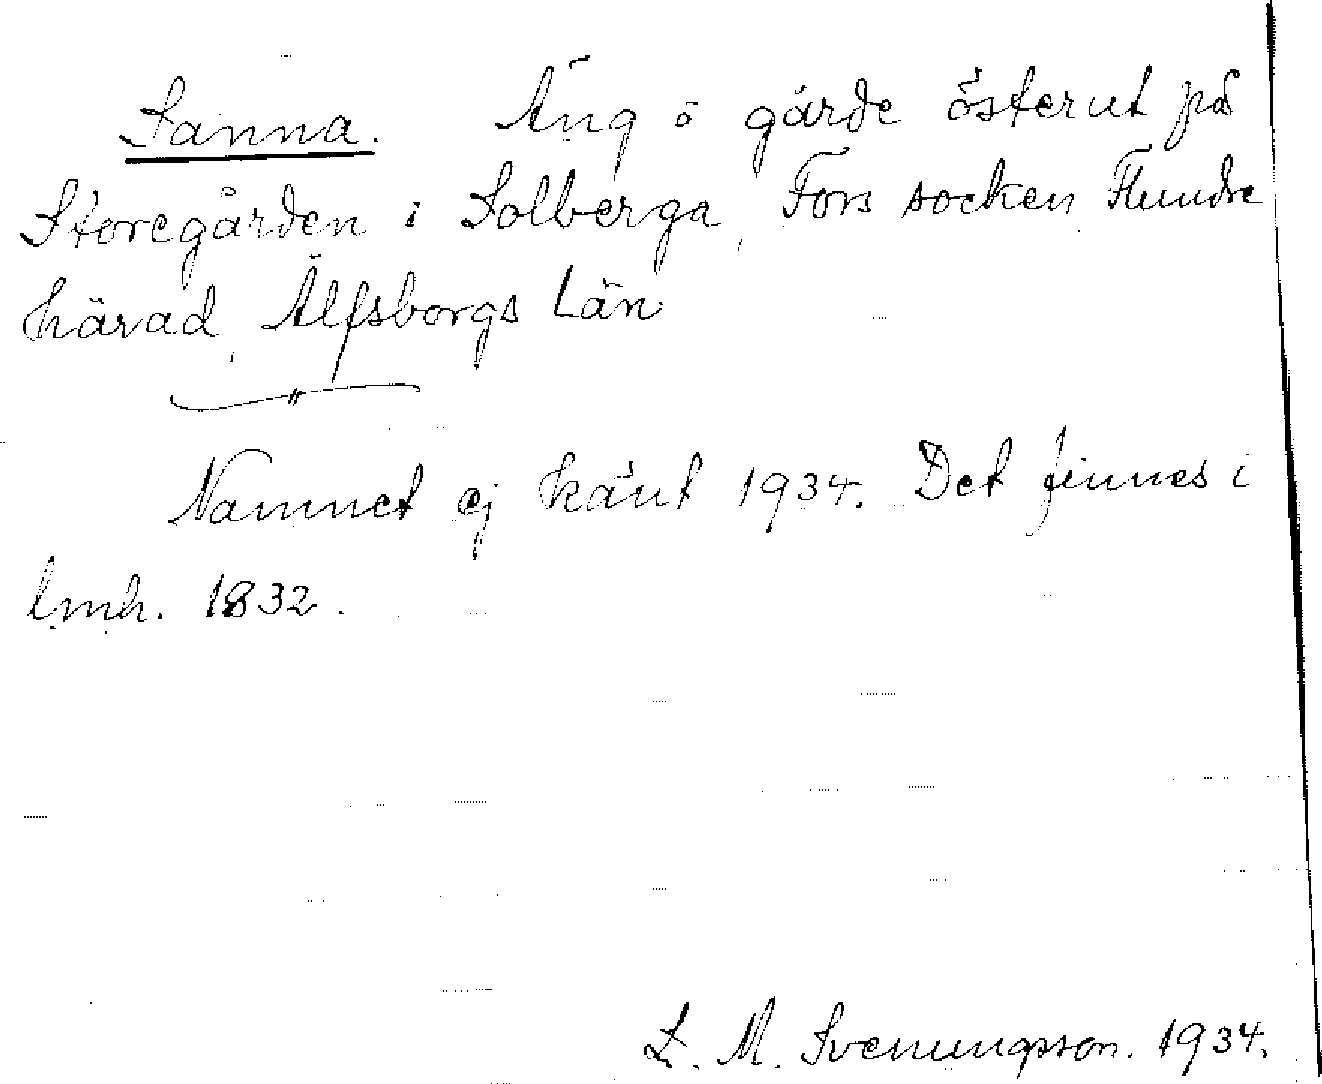 Sanna. Äng o gärde österut på
Storegården i Solberga, Fors socken Flundre
härad, Älfsborgs Län
Namnet ej känt 1934. Det finnes i
lmh. 1832.
L. M. Svenungsson. 1934.